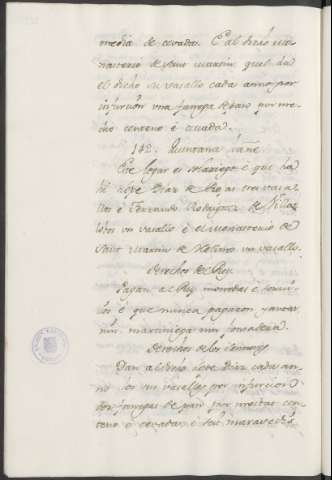 media de cevada. E al dicho mo-
nasterio de sant martin quel da
el dicho su vasallo cada anno por
infurcion una fanega de pan por me-
dio centeno e cevada.
142. Quintana
Este logar es solariego e que ha
hi Lope Diaz de Rojas tres vasa-
llos e Ferrando Rodriguez de Villa
lobos un vasallo e el monasterio de
Sant Martin de un vasallo.
derechos del Rey
Pagan al Rey monedas e servici-
os e que nunca pagaron yantar
nin martiniega nin fonsadera.
derechos de los Sennores
Dan al dicho Lope Diaz cada an-
no los sus vasallos por infurcion
dos fanegas de pan por meitad cen-
teno e cevada e seis maravedis